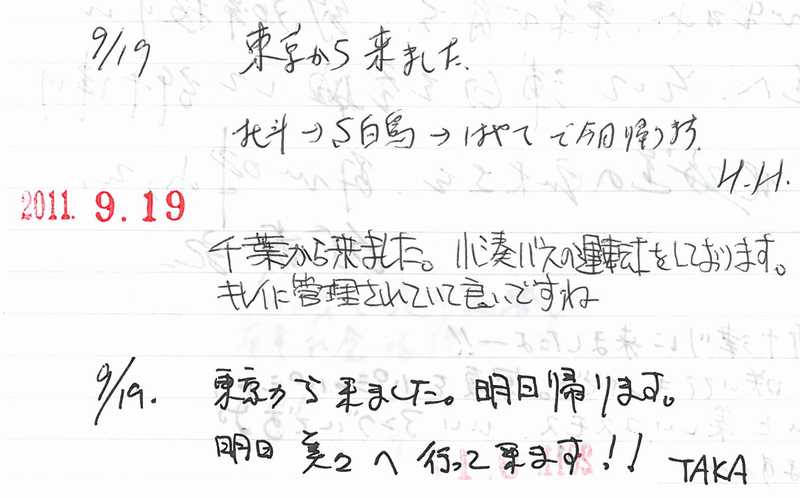 9/19 東京から来ました.
北斗→S白鳥→はやて で今日帰ります.
H.H.
2011. 9. 19
千葉から来ました。小湊バスの運転士をしております。
キレイに管理されていて良いですね
9/19. 東京から来ました。明日帰ります。
明日 美々へ行って来ます!! TAKA